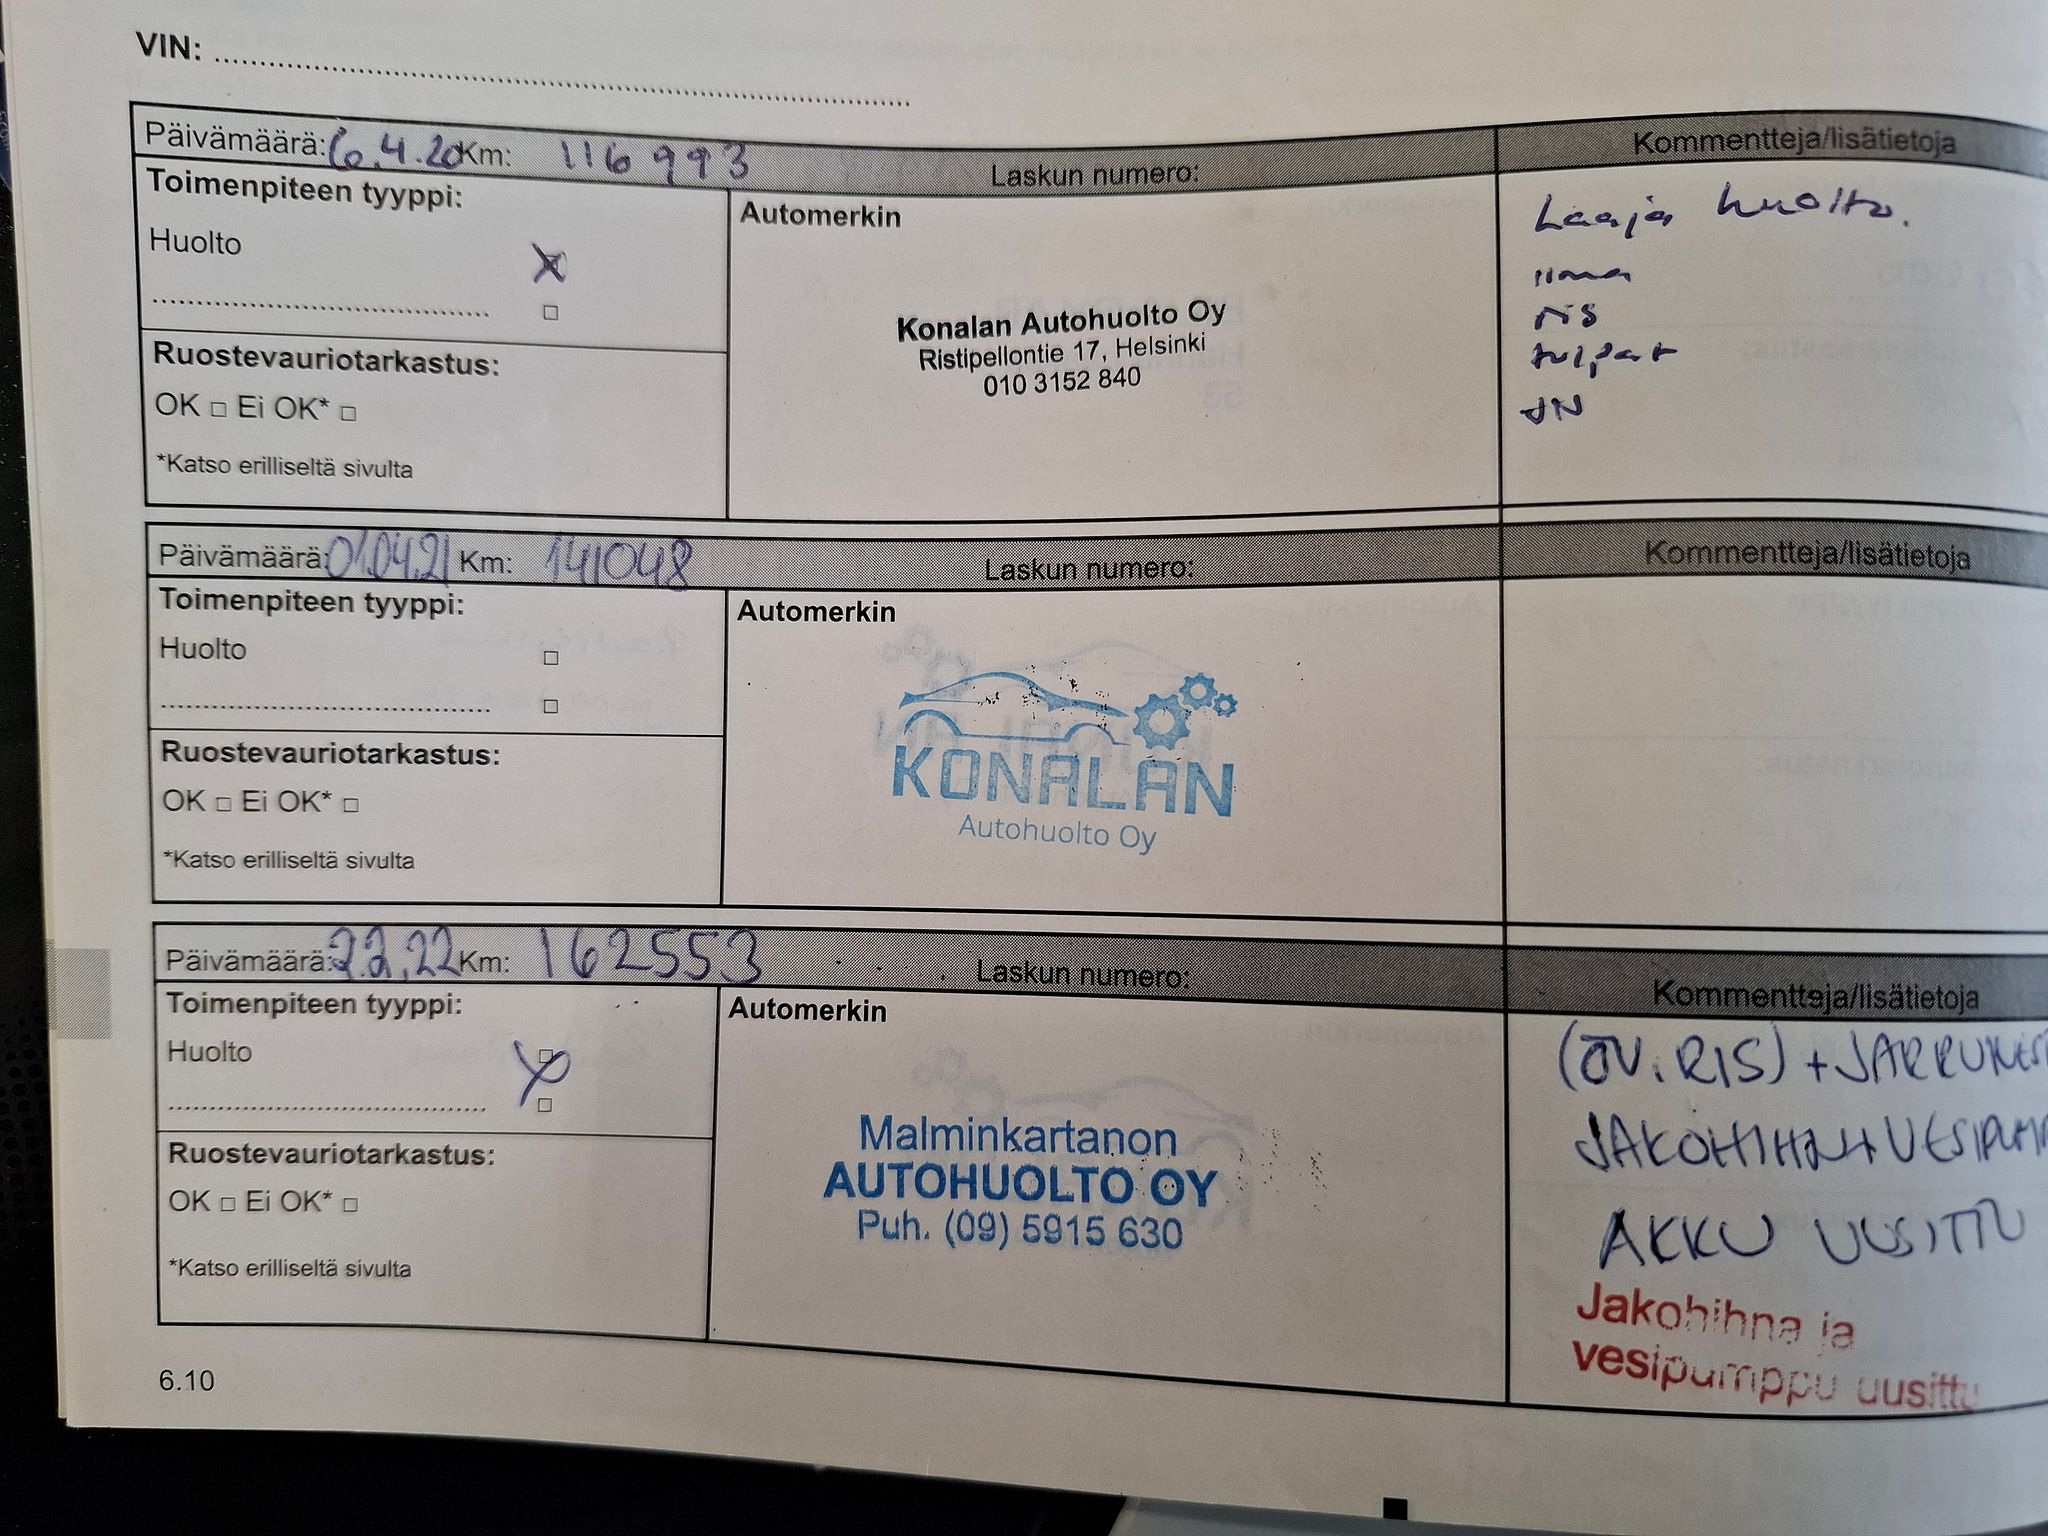 VIN: ........................................
Päivämäärä: 6.4.20 Km: 116993 Laskun numero: Kommentteja/lisätietoja
Toimenpiteen tyyppi:
Huolto
Automerkin
Konalan Autohuolto Oy
Ristipellontie 17, Helsinki
010 3152 840
Laaja huolto.
ilma
RIS
tulpat
JN
Ruostevauriotarkastus:
OK □ Ei OK* □
*Katso erilliseltä sivulta
Päivämäärä: 01.04.21 Km: 141048 Laskun numero: Kommentteja/lisätietoja
Toimenpiteen tyyppi:
Huolto
Automerkin
KONALAN
Autohuolto Oy
Ruostevauriotarkastus:
OK □ Ei OK* □
*Katso erilliseltä sivulta
Päivämäärä: 2.2.22 Km: 162553 Laskun numero: Kommentteja/lisätietoja
Toimenpiteen tyyppi:
Huolto
Automerkin
Malminkartanon
AUTOHUOLTO OY
Puh. (09) 5915 630
(ÖV. RIS) + JARRUNEST
JAKOHIHNA + VESIPUMP
AKKU UUSITTU
Jakohihna ja
vesipumppu uusittu
Ruostevauriotarkastus:
OK □ Ei OK* □
*Katso erilliseltä sivulta
6.10